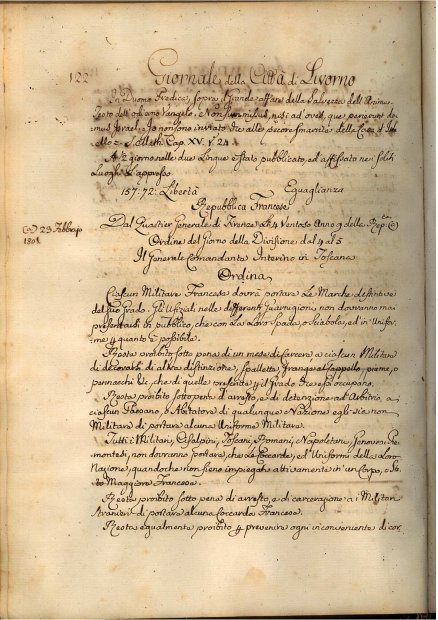 122
Giornale della Città di Livorno
In Duomo Predica, sopra il grande affare della Salvezza dell'Anima.
Testo dell'odierno Vangelo: Non sum missus, nisi ad oves, quæ perierunt do-
mus Israel: Io non sono inviato che alle pecore smarrite della Casa d'Isra-
ello = S. Matth. Cap. XV. v. 24
A' giorno nelle due Lingue è stato pubblicato, ed affissato nei soliti
Luoghi l'appresso
157:72: Libertà Eguaglianza
Repubblica Francese
Dal Quartier Generale di Firenze Li 4 Ventoso Anno 9 della Rep:ca (a)
(a) 23 Febbrajo
1801
Ordine del Giorno della Divisione dal 4 al 5
Il Generale Comandante Interino in Toscana
Ordina
Ciascun Militare Francese dovrà portare le Marche distintive
del suo Grado. Gli Ufiziali nelle differenti Guarnigioni, non dovranno mai
presentarsi in pubblico, che con la Loro Spada, o Sciabola, ed in Unifor-
me p quanto è possibile.
Resta proibito sotto pena di un mese di Carcere a ciascun Militare
di decorarsi di altra distinzione, spalletta, frangia al Cappello, piume, o
pennacchi &c, che di quelle prescritte p il grado che essi occupano.
Resta proibito sotto pena d'arresto, e di detenzione ad Arbitrio a
ciascun Paesano, o Abitatore di qualunque Nazione egli sia non
Militare di portare alcuna Uniforme Militare.
Tutti i Militari, Cisalpini, Toscani, Romani, Napoletani, Genovesi, Pie-
montesi, non dovranno portare, che le Coccarde, ed Uniformi della Loro
Nazione, quando che non sieno impiegati attivamente in un Corpo, o Sta-
to Maggiore Francese.
Resta proibito sotto pena di arresto, e di carcerazione a i Militari
Stranieri di portare alcuna Coccarda Francese.
Resta egualmente proibito p prevenire ogni inconveniente di cor-